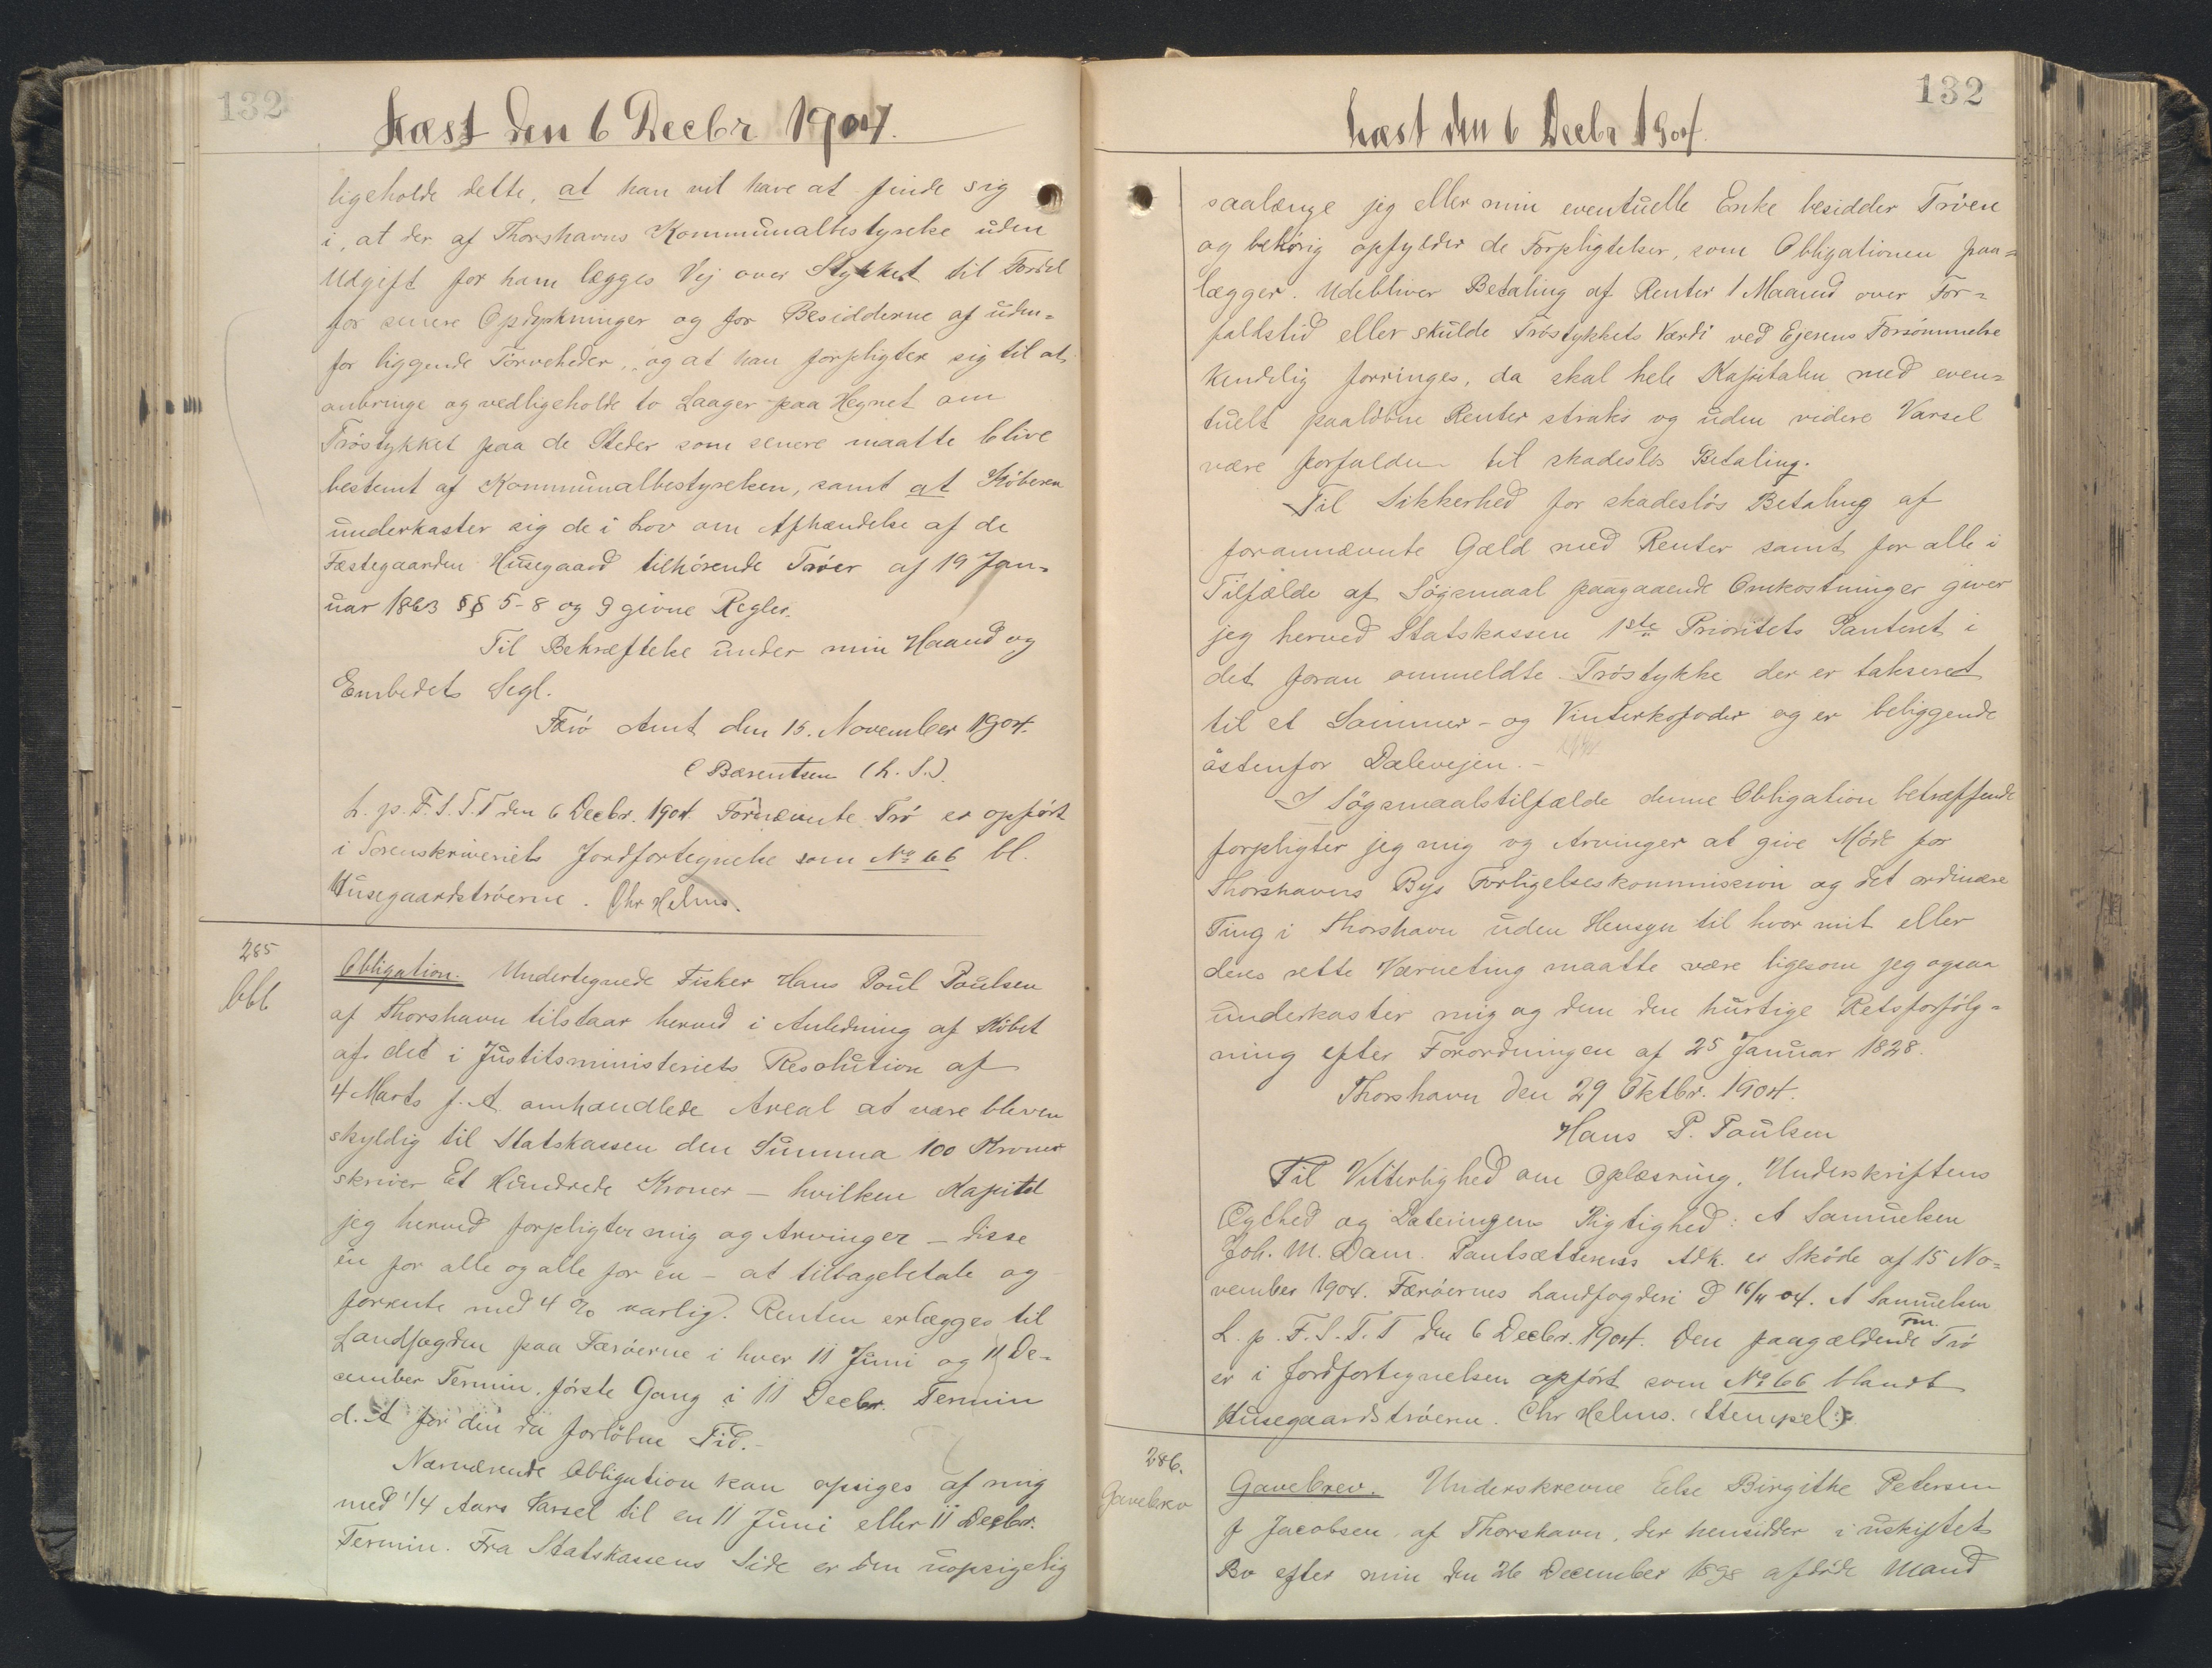 132
Læst den 6 Decbr. 1904.
ligeholde dette, at han vil have at finde sig
i, at der af Thorshavns Kommunalbestyrelse uden
Udgift for ham lægges Vej over Stykket til Fordel
for senere Opdyrkninger og for Besidderne af uden=
for liggende Törveheder, og at han forpligter sig til at
anbringe og vedligeholde to Laager paa Hegnet om
Tröstykket paa de Steder som senere maatte blive
bestemt af Kommunalbestyrelsen, samt at Köberen
underkaster sig de i Lov om Afhændelse af de
Fæstegaarden Husegaard tilhörende Tröer af 19 Jan=
uar 1863 §§ 5-8 og 9 givne Regler.
Til Bekræftelse under min Haand og
Embedets Segl.
Færö Amt den 15. November 1904.
C Bærentsen (L. S.).
L. p. F. S. T. T den 6 Decbr. 1904. Fornævnte Trö er opfört
i Sorenskriveriets Jordfortegnelse som No 66 bl.
Husegaardströerne. Chr Helms.
285
bbl
Obligation. Undertegnede Fisker Hans Poul Poulsen
af Thorshavn tilstaar herved i Anledning afKöbet
af det i Justitsministeriets Resolution af
4 Marts f. A. omhandlede Areal at være bleven
skyldig til Statskassen den Summa 100 Kroner
skriver Et Hundrede Kroner – hvilken Kapital
jeg herved forpligter mig og Arvinger – disse
en for alle og alle for en – at tilbagebetale og
forrente med 4 % aarlig. Renten erlægges til
Landfogden paa Færöerne i hver 11 Juni og 11 De=
cember Termin, förste Gang i 11 Decbr. Termin
d. A for den da forlöbne Tid. –
Nærværende Obligation kan opsiges af mig
med 1/4 Aars Varsel til en 11 Juni eller 11 Decbr.
Termin. Fra Statskassens Side er den uopsigelig
132
Læst den 6 Decbr 1904.
saalænge jeg eller min eventuelle Enke besidder Tröen
og behörig opfylder de Forpligtelser, som Obligationen paa=
lægger. Udebliver Betaling af Renter 1 Maaned over For=
faldstid eller skulde Tröstykkets Værdi ved Ejerens Forsömmelse
kendelig forringes, da skal hele Kapitalen med even=
tuelt paalöbne Renter straks og uden videre Varsel
være forfalden til skadeslös Betaling.
Til Sikkerhed for skadeslös Betaling af
forannævnte Gæld med Renter samt for alle i
Tilfælde af Sögsmaal paagaaende Omkostninger giver
jeg herved Statskassen 1ste Prioritets Panteret i
det foran ommeldte Tröstykke der er takseret
til et Sommer- og Vinterkofoder og er beliggende
östenfor Dalevejen. –
I Sögsmaalstilfælde denne Obligation betræffende
forpligter jeg mig og Arvinger at give Möde for
Thorshavns Bys Forligelseskommission og det ordinære
Ting i Thorshavn uden Hensyn til hvor mit eller
deres rette Værneting maatte være ligesom jeg ogsaa
underkaster mig og dem den hurtige Retsforfölg=
ning efter Forordningen af 25 Januar 1828.
Thorshavn den 29 Oktbr. 1904.
Hans P. Poulsen
Til Vitterlighed om Oplæsning, Underskriftens
Ægthed og Dateringens Rigtighed: A Samuelsen
Joh. M. Dam. Pantsætterens Adk. er Sköde af 15 No=
vember 1904. Færöernes Landfogderi d 16/11 04. A Samuelsen
L. p. F. S. T. T den 6 Decbr. 1904. Den paagældende Trö
er i Jordfortegnelsen opfört som No 66 blandt
Husegaardströerne. Chr Helms. (Stempel:).
286.
Gavebrev
Gavebrev. Underskrevne Else Birgithe Petersen
f Jacobsen af Thorshavn, der hensidder i uskiftet
Bo efter min den 26 December 1898 afdöde Mand